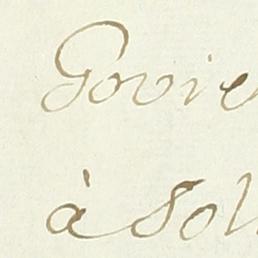 Govie
à Sol